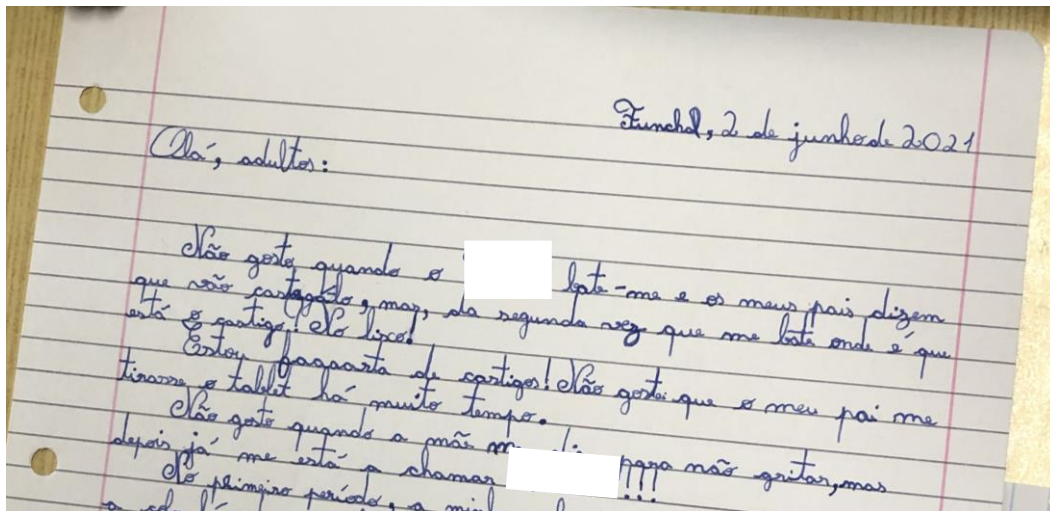 Funchal, 2 de junho de 2021
Olá, adultos:
Não gosto quando o bate-me e os meus pais dizem
que vão castigá-lo, mas, da segunda vez que me bate onde é que
está o castigo? No lixo!
Estou de castigos! Não gostei que o meu pai me
tirasse o tablet há muito tempo.
Não gosto quando a mãe para não gritar, mas
depois já me está a chamar !!!
No primeiro período, a